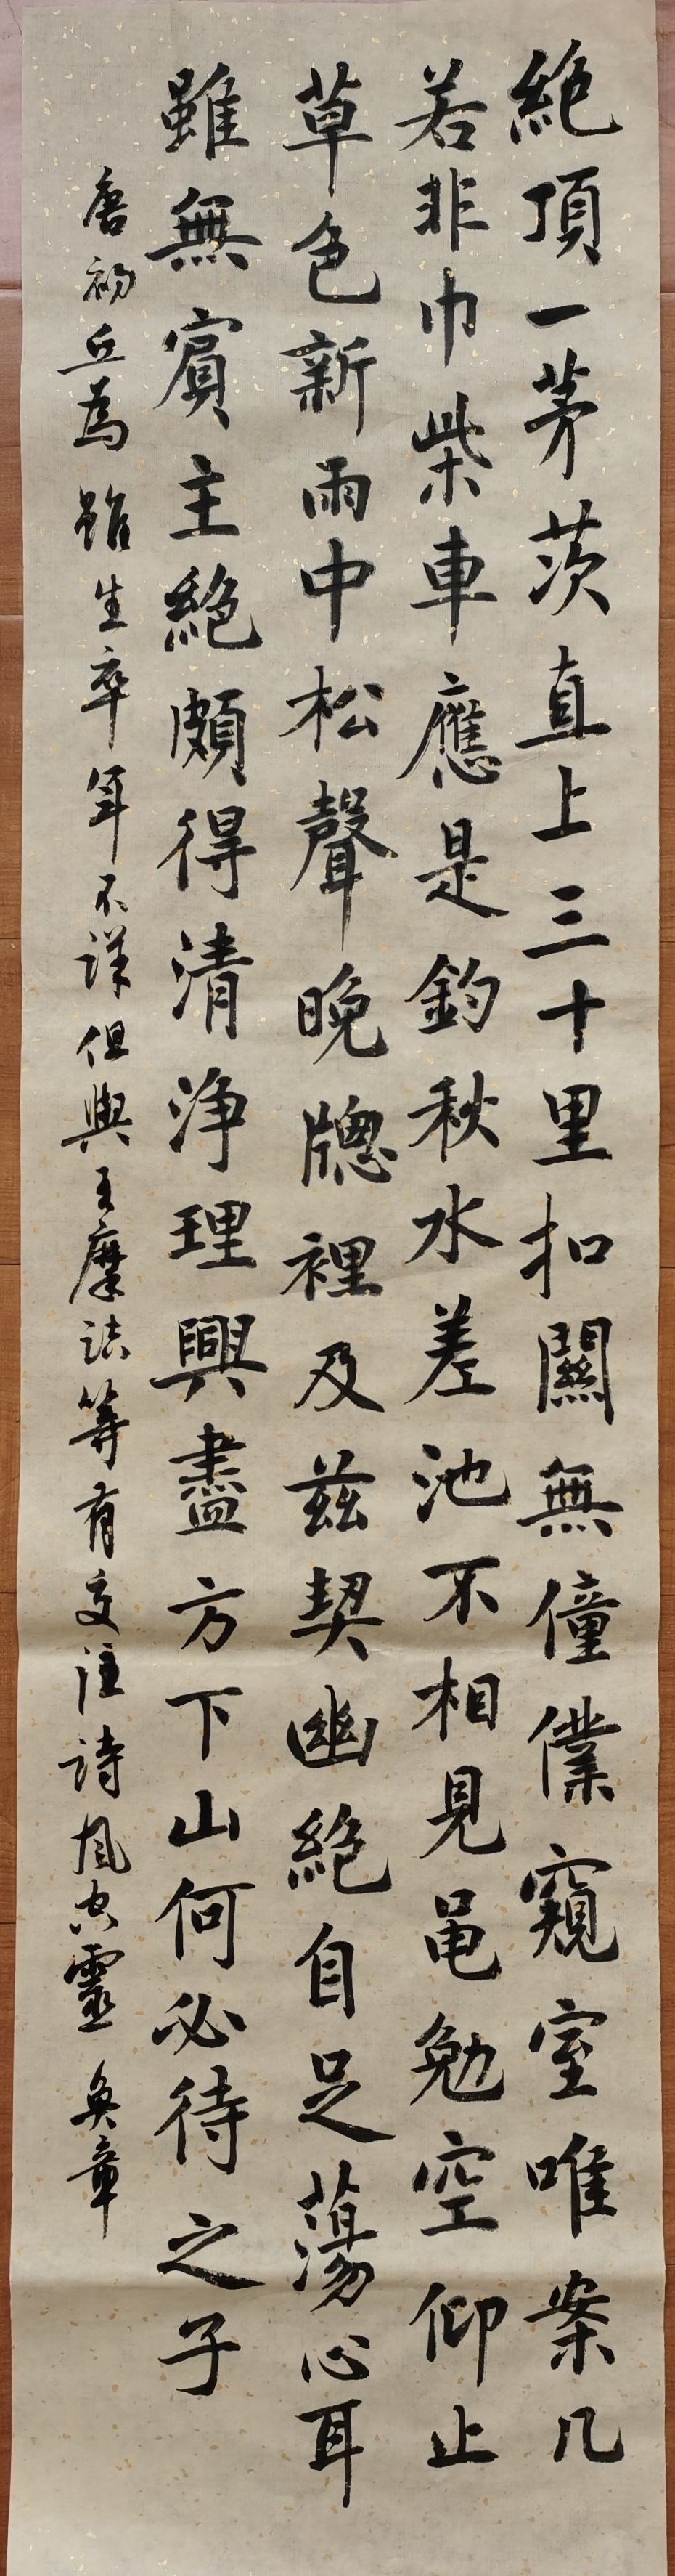 絶頂一茅茨直上三十里扣關無僮僕窺室唯案几
若非巾柴車應是釣秋水差池不相見黽勉空仰止
草色新雨中松聲晚牕裡及茲契幽絶自足蕩心耳
雖無賓主絶頗得清淨理興盡方下山何必待之子
唐初丘為雖生卒年不詳但與王摩詰等有交往詩風空靈 奐章